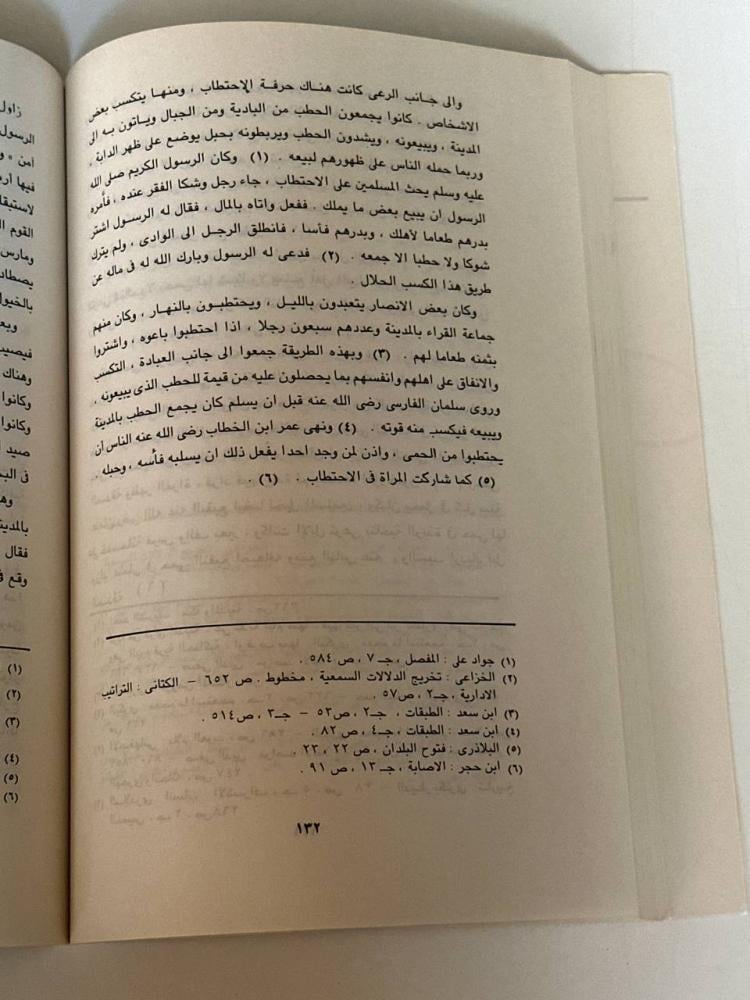 والى جانب الرعى كانت هناك حرفة الإحتطاب ، ومنها يتكسب بعض
الاشخاص . كانوا يجمعون الحطب من البادية ومن الجبال وياتون به الى
المدينة ، ويبيعونه ، ويشدون الحطب ويربطونه بحبل يوضع على ظهر الدابة ،
وربما حمله الناس على ظهورهم لبيعه . (١) وكان الرسول الكريم صلى الله
عليه وسلم يحث المسلمين على الاحتطاب ، جاء رجل وشكا الفقر عنده ، فأمره
الرسول ان يبيع بعض ما يملك . ففعل واتاه بالمال ، فقال له الرسول اشتر
بدرهم طعاما لأهلك ، وبدرهم فأسا ، فانطلق الرجل الى الوادى ، ولم يترك
شوكا ولا حطبا الا جمعه . (٢) فدعى له الرسول وبارك الله له فى ماله عن
طريق هذا الكسب الحلال .
وكان بعض الانصار يتعبدون بالليل ، ويحتطبون بالنهار ، وكان منهم
جماعة القراء بالمدينة وعددهم سبعون رجلا ، اذا احتطبوا باعوه ، واشتروا
بثمنه طعاما لهم . (٣) وبهذه الطريقة جمعوا الى جانب العبادة ، التكسب
والانفاق على اهلهم وانفسهم بما يحصلون عليه من قيمة للحطب الذى يبيعونه ،
وروى سلمان الفارسى رضى الله عنه قبل ان يسلم كان يجمع الحطب بالمدينة
ويبيعه فيكسب منه قوته . (٤) ونهى عمر ابن الخطاب رضى الله عنه الناس أن
يحتطبوا من الحمى ، واذن لمن وجد احدا يفعل ذلك ان يسلبه فأسه ، وحبله .
(٥) كما شاركت المراة فى الاحتطاب . (٦) .
(١) جواد على : المفصل ، جـ ٧ ، ص ٥٨٤ .
(٢) الخزاعى : تخريج الدلالات السمعية ، مخطوط . ص ٦٥٢ – الكتانى : التراتيب
الادارية ، جـ٢ ، ص٥٧ .
(٣) ابن سعد : الطبقات ، جـ٢ ، ص٥٣ – جـ٣ ، ص٥١٤ .
(٤) ابن سعد : الطبقات ، جـ٤ ، ص ٨٢ .
(٥) البلاذرى : فتوح البلدان ، ص ٢٢ ، ٢٣ .
(٦) ابن حجر : الاصابة ، جـ ١٣ ، ص ٩١ .
١٣٢
زاول
الرسول
لاستبقا
القوم ال
ومارس
يصطاد
بالخيول
وبع
فيصيد
وهناك
وكانوا
وكانوا
صيد
فى الب
وه
بالمدين
فقال
وقع ف
(١)
(٢)
(٣)
(٤)
(٥)
(٦)